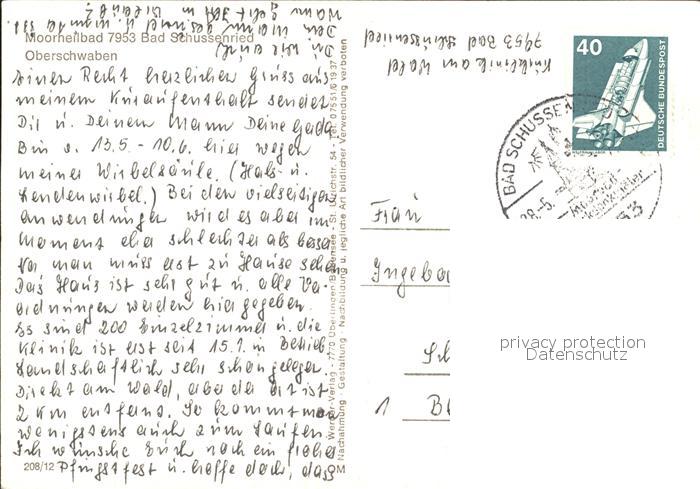 Moorheilbad 7953 Bad Schussenried
Oberschwaben
Einen Recht herzlichen Gruss aus
meinem Kuraufenthalt sendet
Dir u. Deinem Mann Deine
Bin v. 13.5. - 10.6. hier wegen
meiner Wirbelsäule. (Hals- u.
Lendenwirbel.) Bei den vielseitigen
Anwendungen wird es aber im
Moment eher schlechter als besser
Na man muss erst zu Hause sehen
Das Haus ist sehr gut u. alle Ver-
ordnungen werden hier gegeben.
Es sind 200 Einzelzimmer u. die
Klinik ist erst seit 15.1. in Betrieb
Landschaftlich sehr schön gelegen.
Direkt am Wald, aber der Ort ist
2 Km entfernt. So kommt man
wenigstens auch zum Laufen.
Ich wünsche Euch noch ein frohes
Pfingstfest u. hoffe doch, dass
208/12
Du wie auch
Dein Mann gesund u. munter
Wann geht Ihr in Urlaub?
Kurklinik am Wald
7953 Bad Schussenried
Werner-Verlag - 7770 Überlingen Bodensee - St. Ulrichstr. 54 - Tel. 07551/61937
Nachahmung - Gestaltung - Nachbildung u. jegliche Art bildlicher Verwendung verboten
40
DEUTSCHE BUNDESPOST
BAD SCHUSSEN
28.-5.
53
Frau
Ingebo
Sch
1 B
privacy protection
Datenschutz